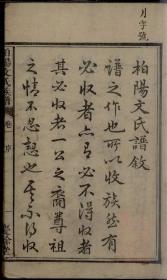 月字號
柏陽文氏譜敘
譜之作也所以收族然有
必收者六有必不得收者
其必收者一公之裔尊祖
之情不忍恝也其不得收
柏陽文氏族譜
卷
序